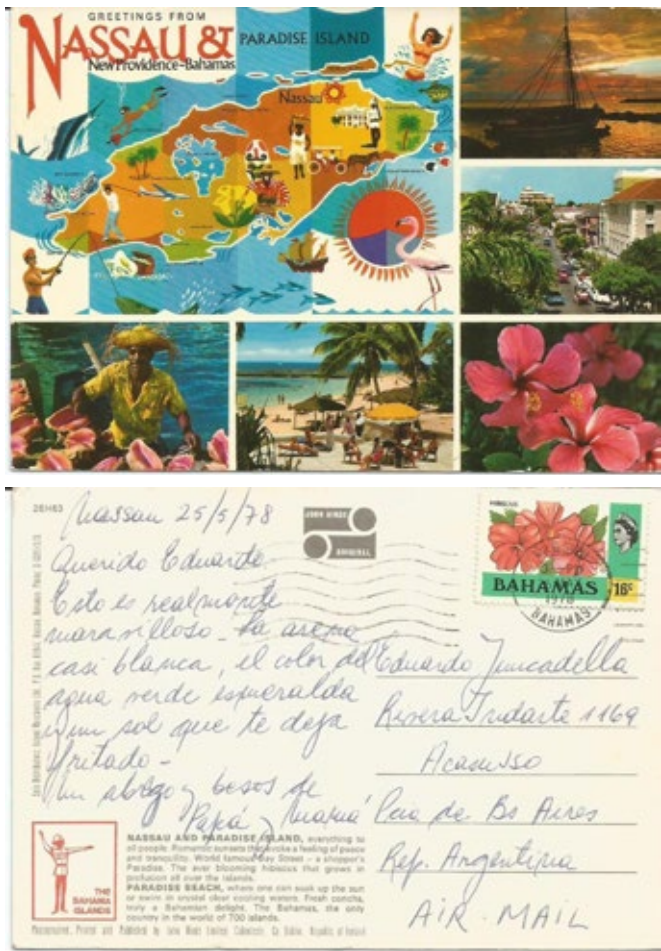 GREETINGS FROM
NASSAU &
PARADISE ISLAND
New Providence-Bahamas
Nassau
26H63
Nassau 25/5/78
JOHN HINDE
ORIGINAL
HIBISCUS
BAHAMAS 16c
1978
BAHAMAS
Querido Eduardo
Esto es realmente
maravilloso - La arena
casi blanca, el color del
agua verde esmeralda
y un sol que te deja
fritado -
Un abrazo y besos de
Papá y Mamá
Eduardo Juncadella
Rivera Indarte 1169
Acassuso
Pcia de Bs Aires
Rep. Argentina
AIR-MAIL
THE
BAHAMA
ISLANDS
NASSAU AND PARADISE ISLAND, everything to
all people. Romantic sunsets that evoke a feeling of peace
and tranquility. World famous Bay Street - a shopper's
Paradise. The ever blooming hibiscus that grows in
profusion all over the islands.
PARADISE BEACH, where one can soak up the sun
or swim in crystal clear cooling waters. Fresh conchs,
truly a Bahamian delight. The Bahamas, the only
country in the world of 700 islands.
Photographed, Printed and Published by John Hinde Limited Cabinteely, Co. Dublin, Republic of Ireland